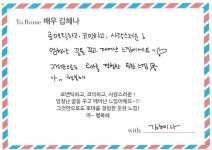 To.Rome 배우 김혜나
로맨틱하고, 코믹하고, 사랑스러운!
엄청난 꿈을 꾸고 깨어난 느낌이에요~♡
그것만으로도 로마를 경험한 듯한 느낌!
아~ 행복해
로맨틱하고, 코믹하고, 사랑스러운!
엄청난 꿈을 꾸고 깨어난 느낌이에요~♡
그것만으로도 로마를 경험한 듯한 느낌!
아~ 행복해
with 김혜나